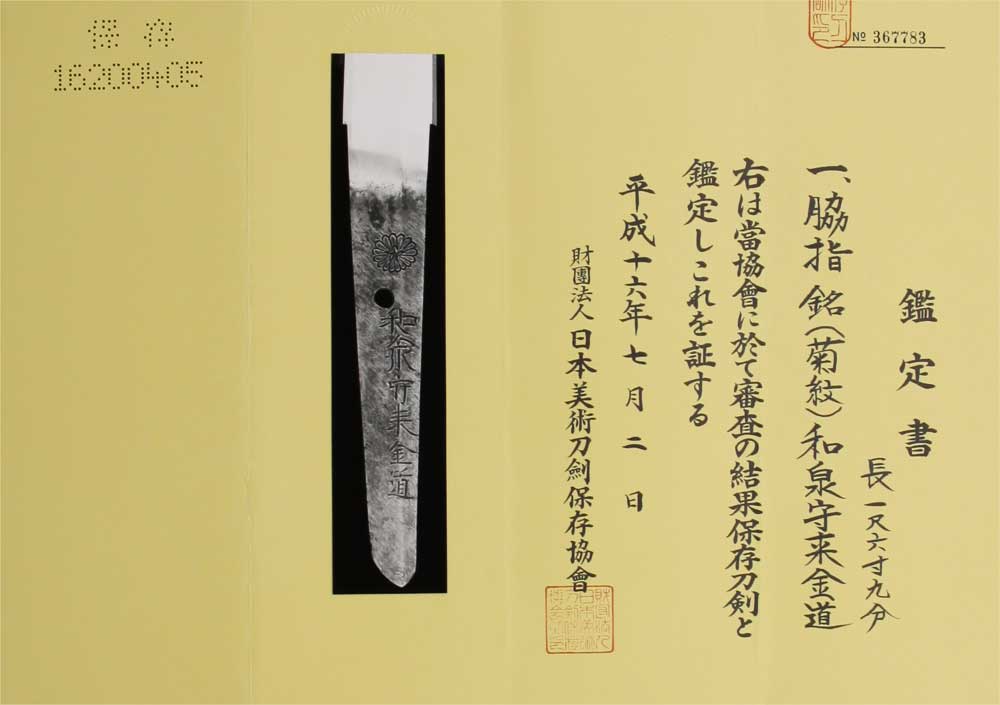 № 367783
鑑定書
一、脇指 銘(菊紋)和泉守来金道
長一尺六寸九分
右は當協會に於て審査の結果保存刀剣と
鑑定しこれを証する
平成十六年七月二日
財團法人日本美術刀劍保存協會
和泉守来金道
保存
16200405